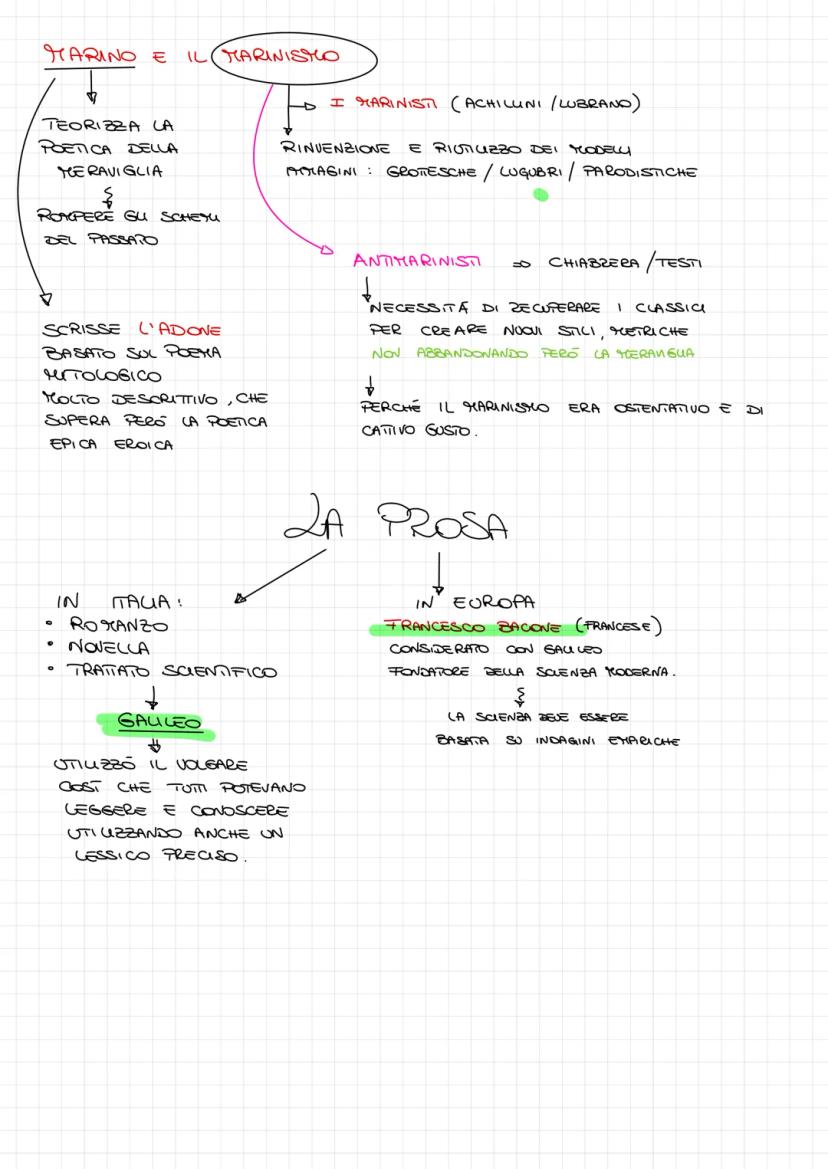 MARINO E IL MARINISMO
I MARINISTI (ACHILLINI/LUBRANO)
TEORIZZA LA
POETICA DELLA
MERAVIGLIA
ROMPERE GLI SCHEMI
DEL PASSATO
RINVENZIONE E RIUTILIZZO DEI MODELLI
IMMAGINI: GROTESCHE / LUGUBRI / PARODISTICHE
ANTIMARINISTI ⇒ CHIABRERA/TESTI
NECESSITÁ DI RECUPERARE I CLASSICI
PER CREARE NUOVI STILI, METRICHE
NON ABBANDONANDO PERÓ LA MERAVIGLIA
PERCHÉ IL MARINISMO ERA OSTENTATIVO E DI
CATTIVO GUSTO.
SCRISSE L'ADONE
BASATO SUL POEMA
MITOLOGICO
MOLTO DESCRITTIVO, CHE
SUPERA PERÓ LA POETICA
EPICA EROICA
LA PROSA
IN ITALIA:
• ROMANZO
• NOVELLA
• TRATTATO SCIENTIFICO
GALILEO
UTILIZZÓ IL VOLGARE
COSÍ CHE TUTTI POTEVANO
LEGGERE E CONOSCERE
UTILIZZANDO ANCHE UN
LESSICO PRECISO.
IN EUROPA
FRANCESCO BACONE (FRANCESE)
CONSIDERATO CON GALILEO
FONDATORE DELLA SCIENZA MODERNA.
LA SCIENZA DEVE ESSERE
BASATA SU INDAGINI EMPIRICHE